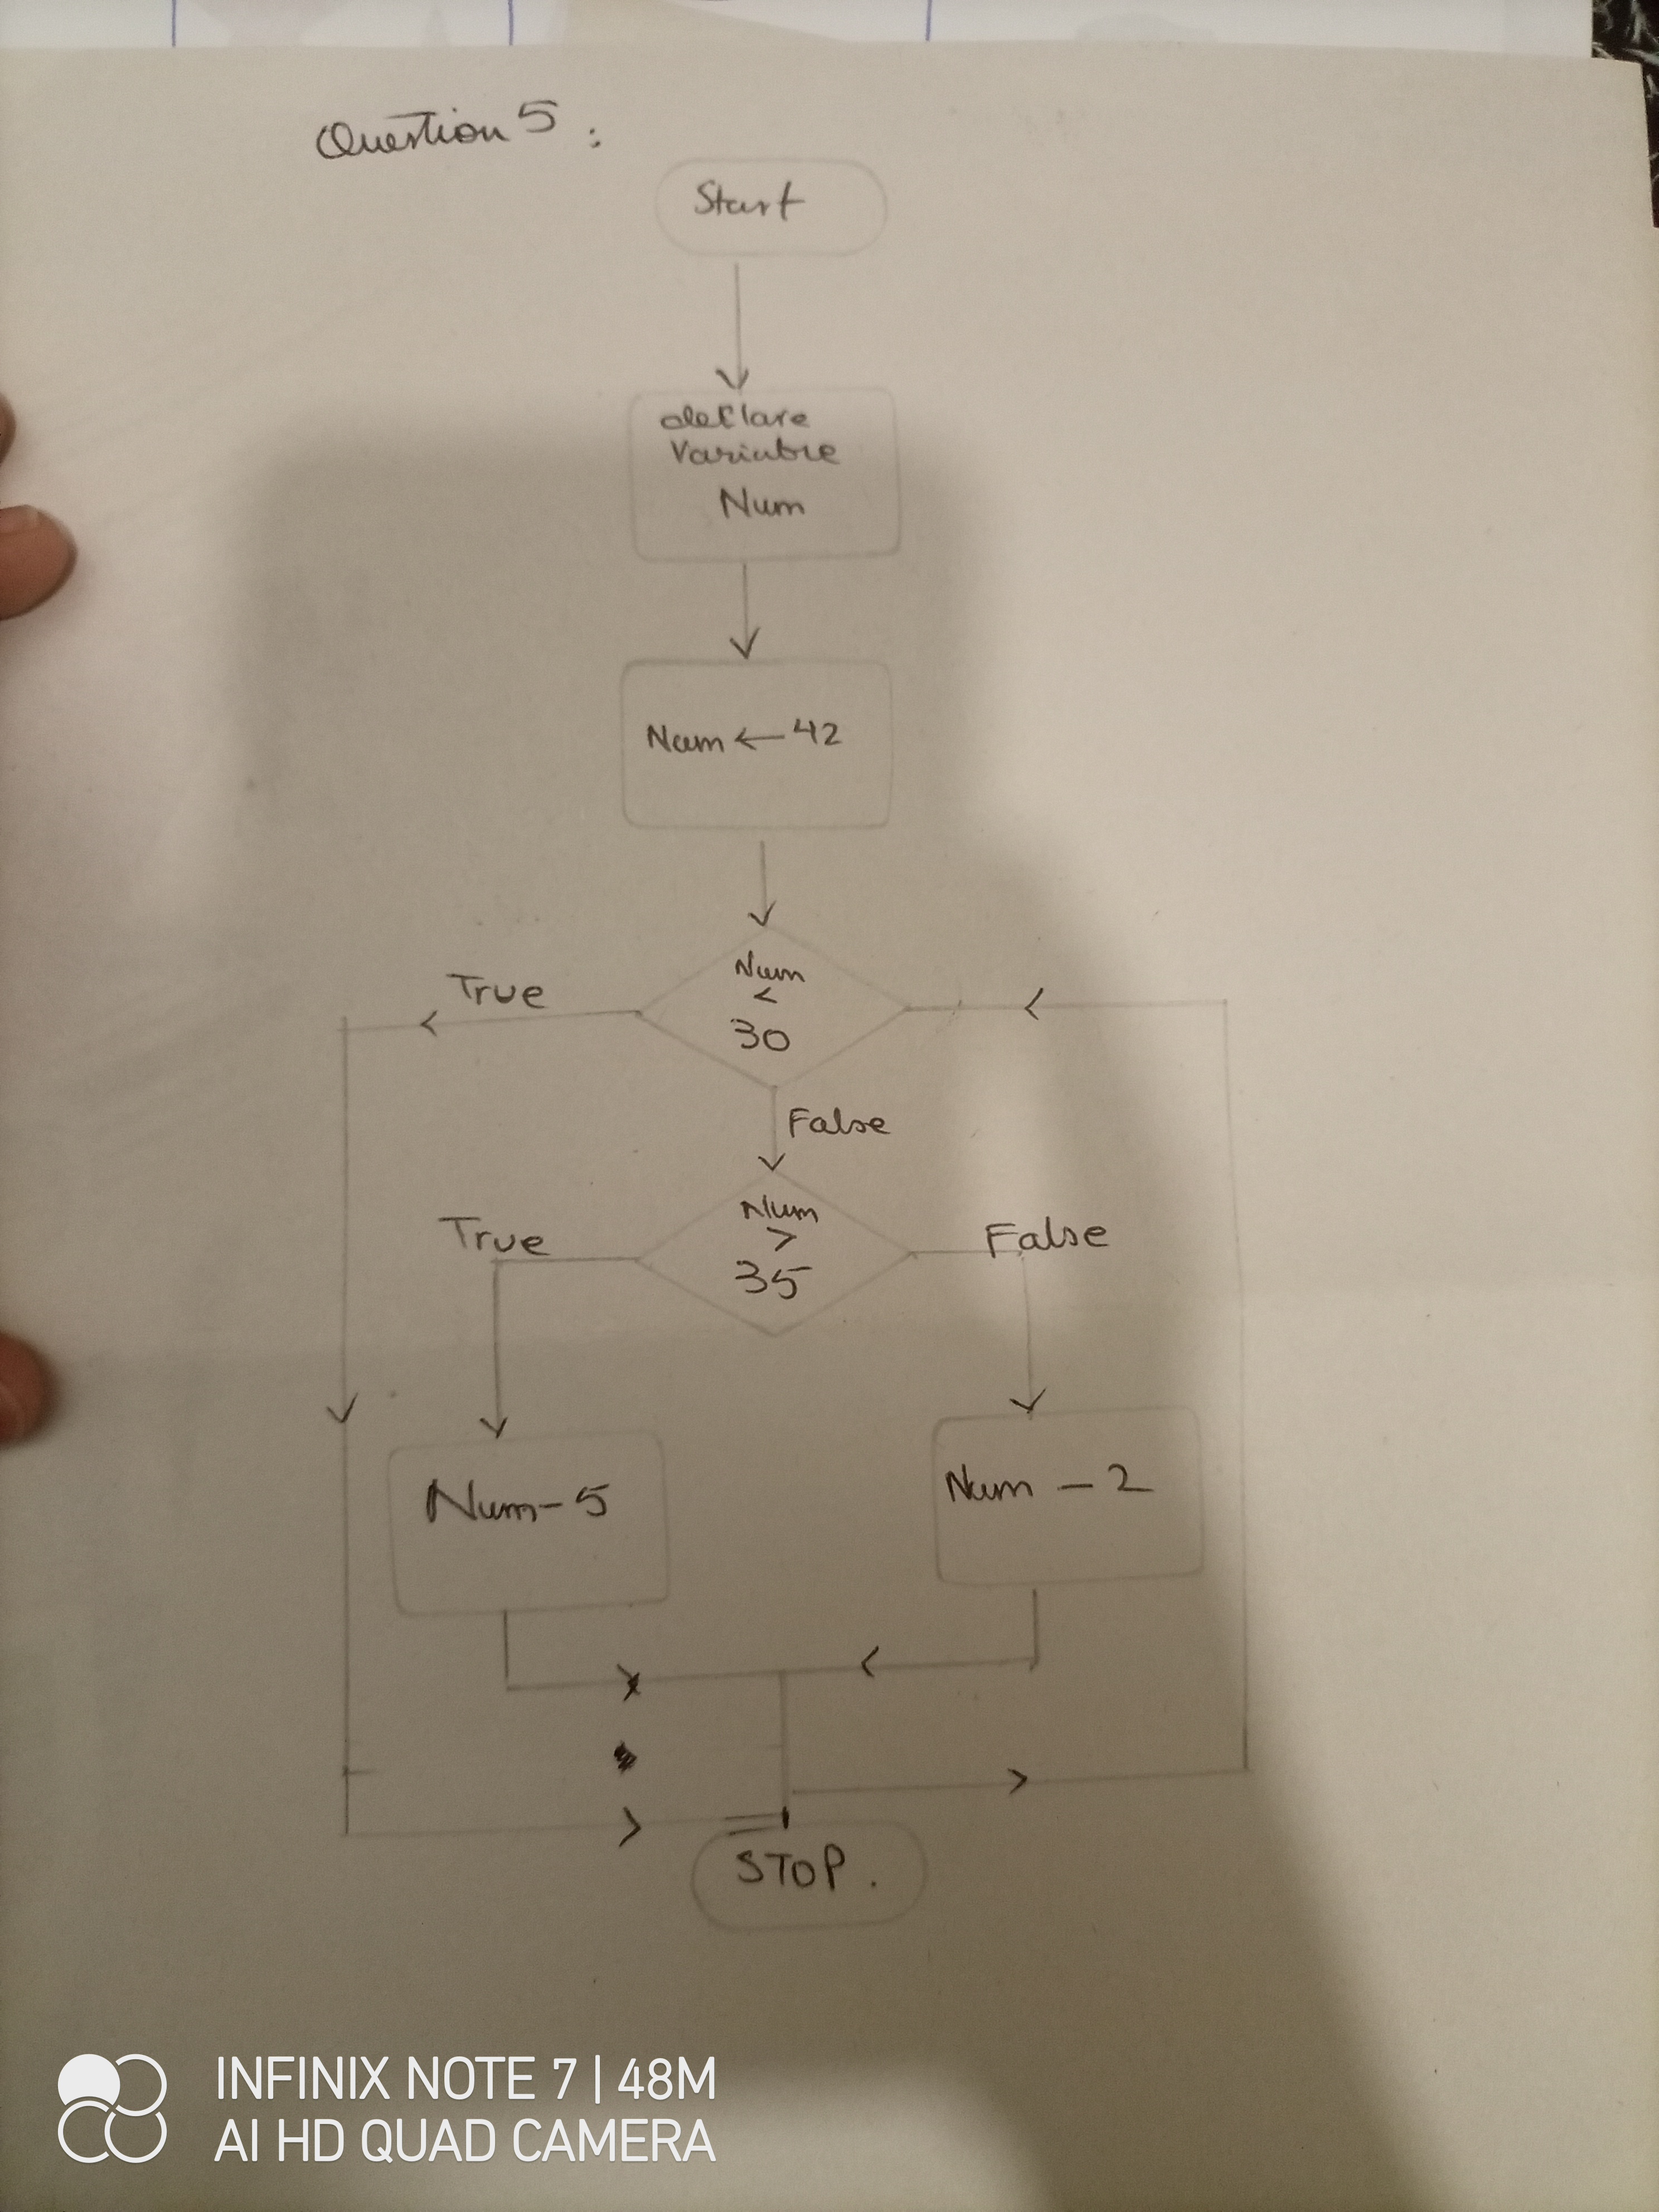 Question 5 :
Start
declare
Variable
Num
Num ← 42
Num
<
30
True
False
Num
>
35
True
False
Num - 5
Num - 2
STOP.
INFINIX NOTE 7 | 48M
AI HD QUAD CAMERA